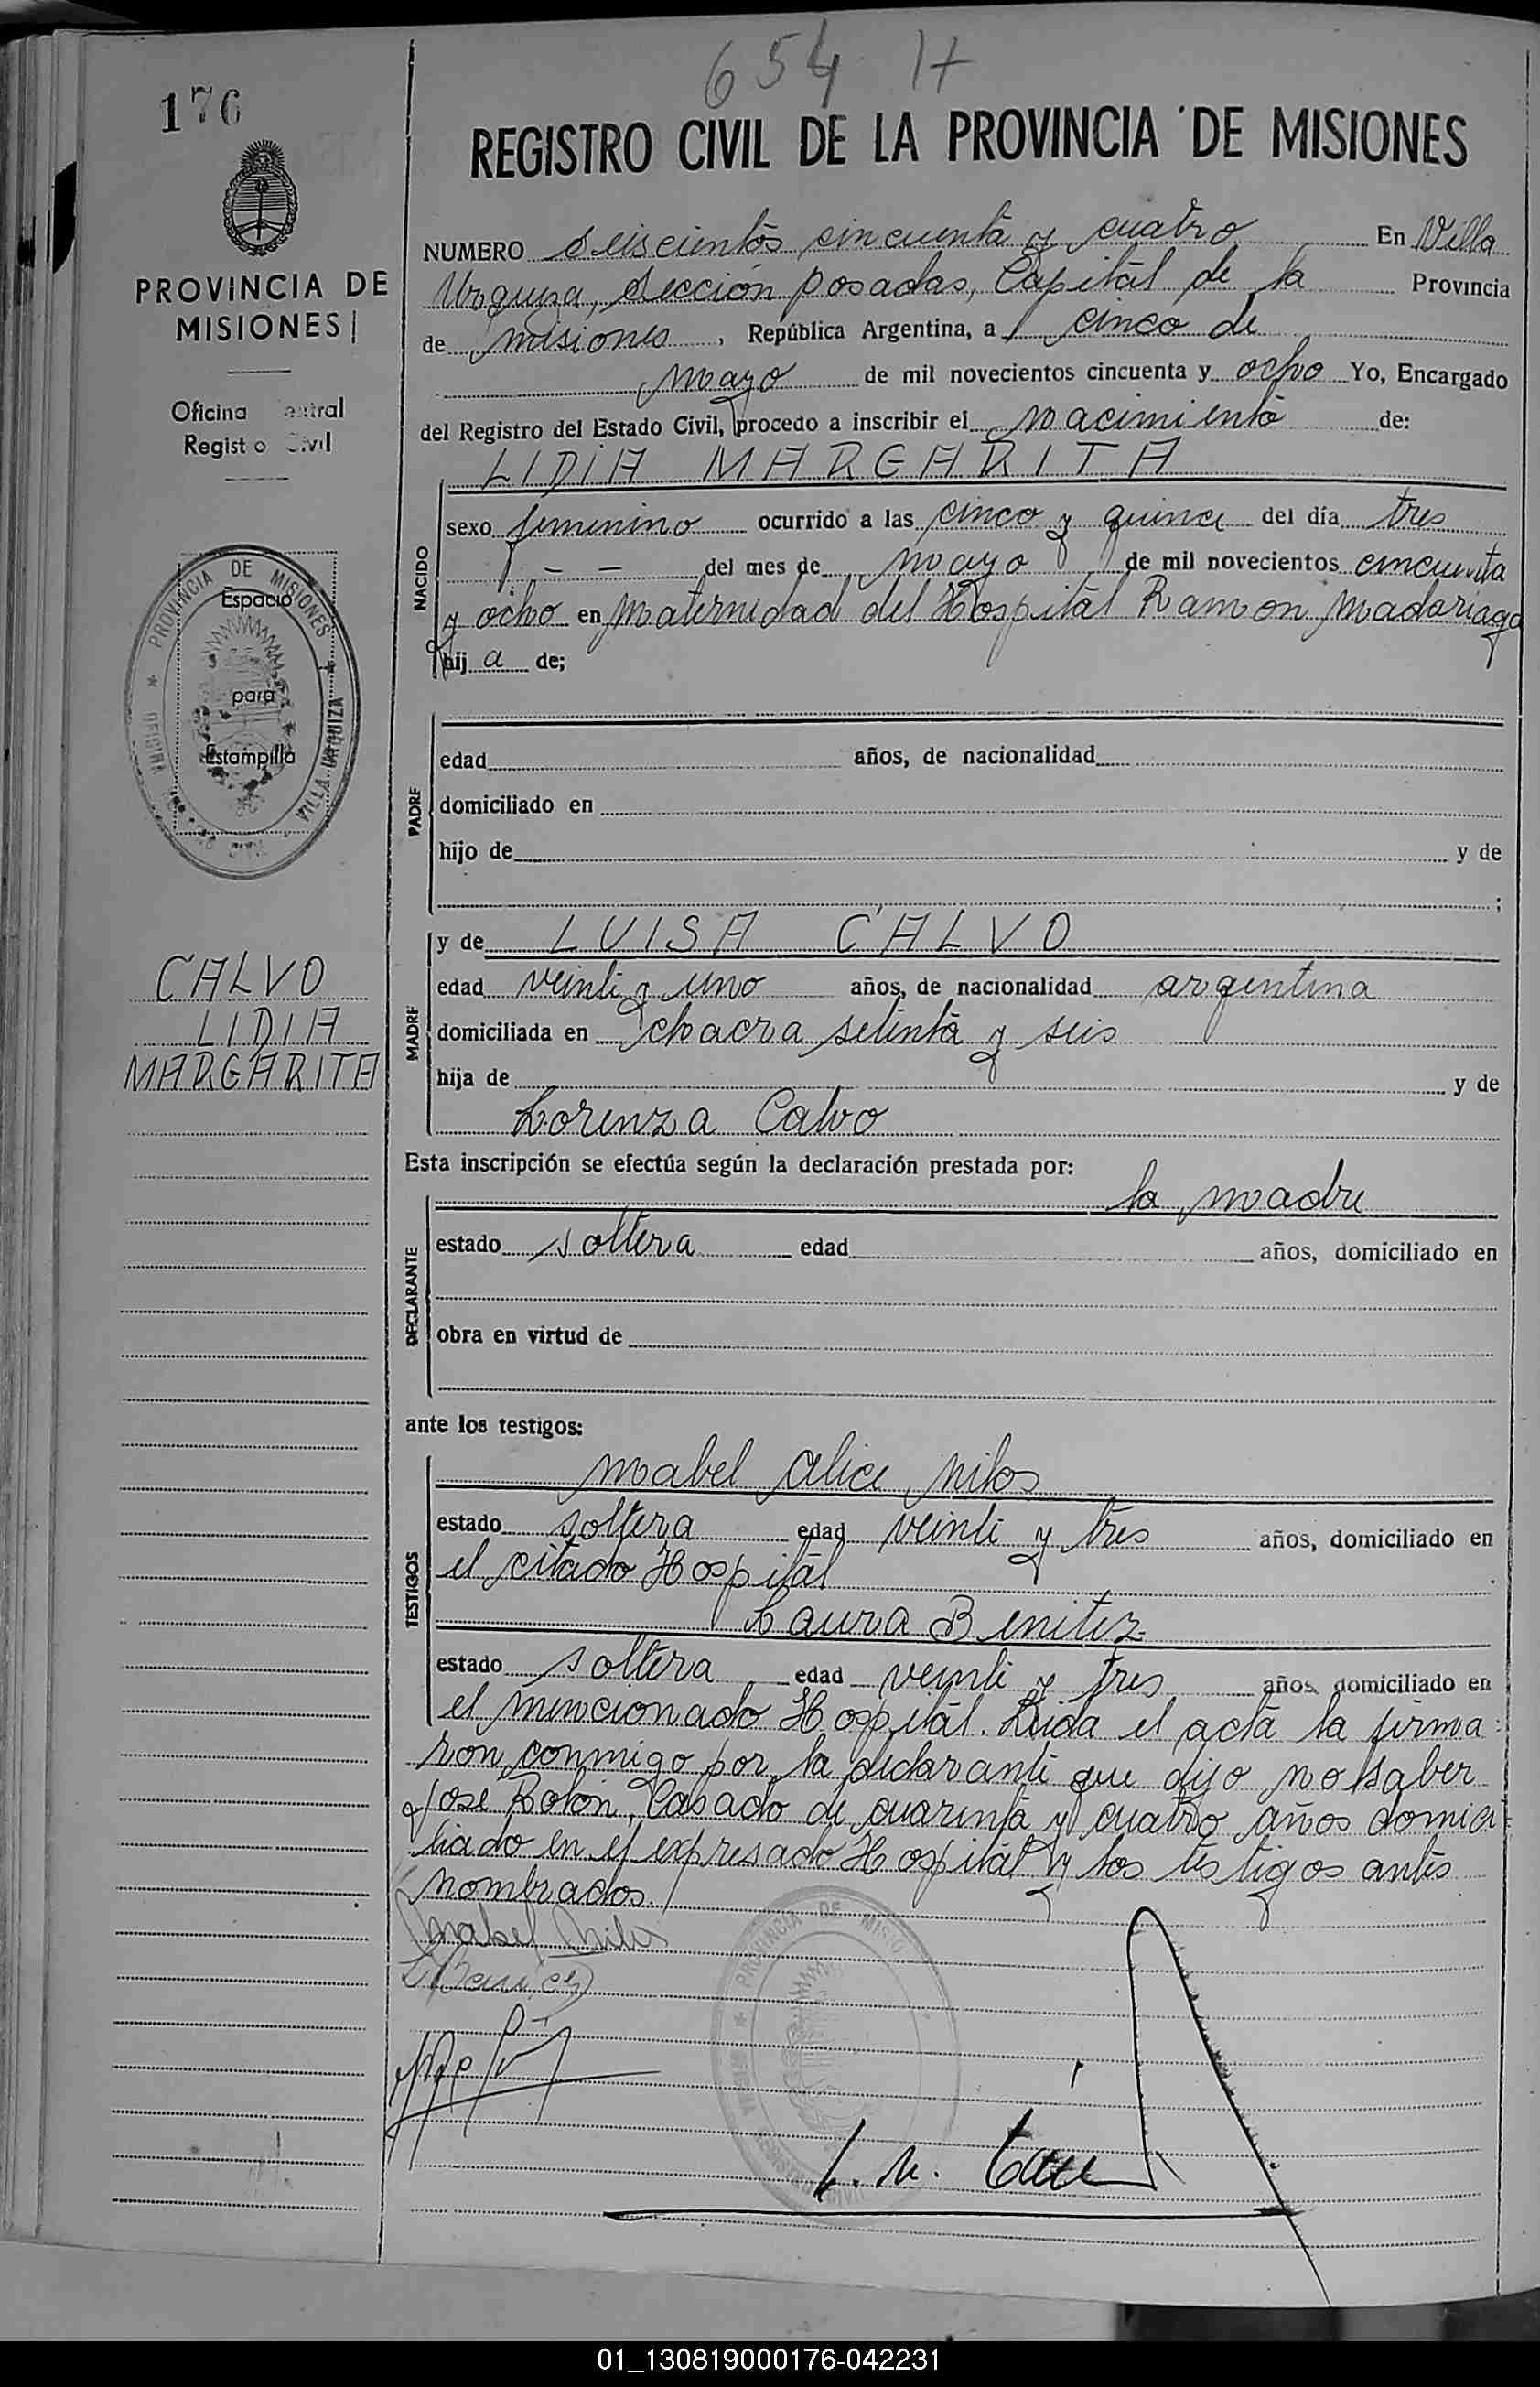 654 H
176
REGISTRO CIVIL DE LA PROVINCIA DE MISIONES
PROVINCIA DE
MISIONES
Oficina Central
Registro Civil
PROVINCIA DE MISIONES
OFICINA VILLA URQUIZA
Espacio
para
Estampilla
CALVO
LIDIA
MARGARITA
NUMERO seiscientos cincuenta y cuatro En Villa
Urquiza, Sección Posadas, Capital de la Provincia
de misiones, República Argentina, a cinco de
mayo de mil novecientos cincuenta y ocho Yo, Encargado
del Registro del Estado Civil, procedo a inscribir el nacimiento de:
LIDIA MARGARITA
NACIDO
sexo femenino ocurrido a las cinco y quince del día tres
- - del mes de mayo de mil novecientos cincuenta
y ocho en Maternidad del Hospital Ramon Madariaga
hij a de;
PADRE
edad años, de nacionalidad
domiciliado en
hijo de y de
;
MADRE
y de LUISA CALVO
edad veinti y uno años, de nacionalidad argentina
domiciliada en chacra setenta y seis
hija de y de
Lorenza Calvo
Esta inscripción se efectúa según la declaración prestada por:
la madre
DECLARANTE
estado soltera edad años, domiciliado en
obra en virtud de
ante los testigos:
TESTIGOS
Mabel Alice Milos
estado soltera edad veinti y tres años, domiciliado en
el citado Hospital
Laura Benitez
estado soltera edad veinti y tres años domiciliado en
el mencionado Hospital. Leida el acta la firma
ron conmigo por la declarante que dijo no saber
José Rolón, Casado de cuarenta y cuatro años domici
liado en el expresado Hospital y los testigos antes
nombrados.
Mabel Milos
PROVINCIA DE MISIONES
01_130819000176-042231